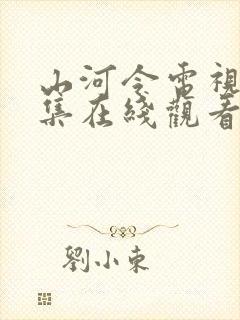 山河令電視
集在綫觀看
劉小東